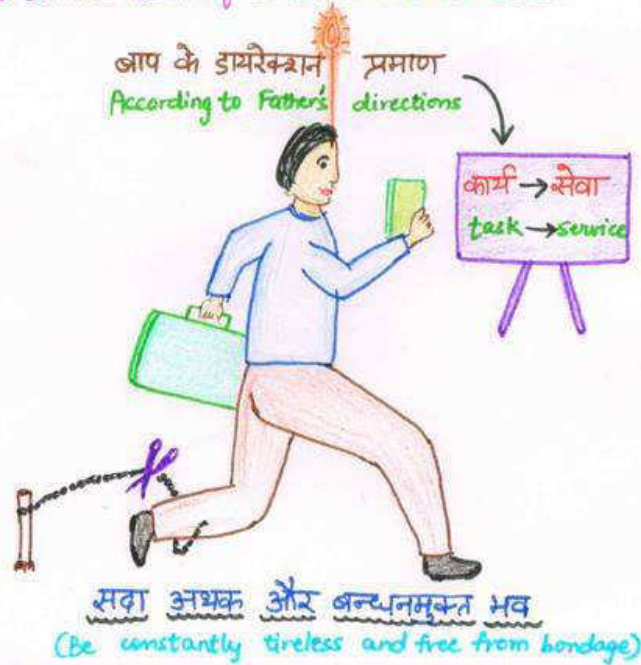 बाप के डायरेक्शन प्रमाण
According to Father's directions
कार्य → सेवा
task → service
सदा अथक और बन्धनमुक्त भव
(Be constantly tireless and free from bondage)